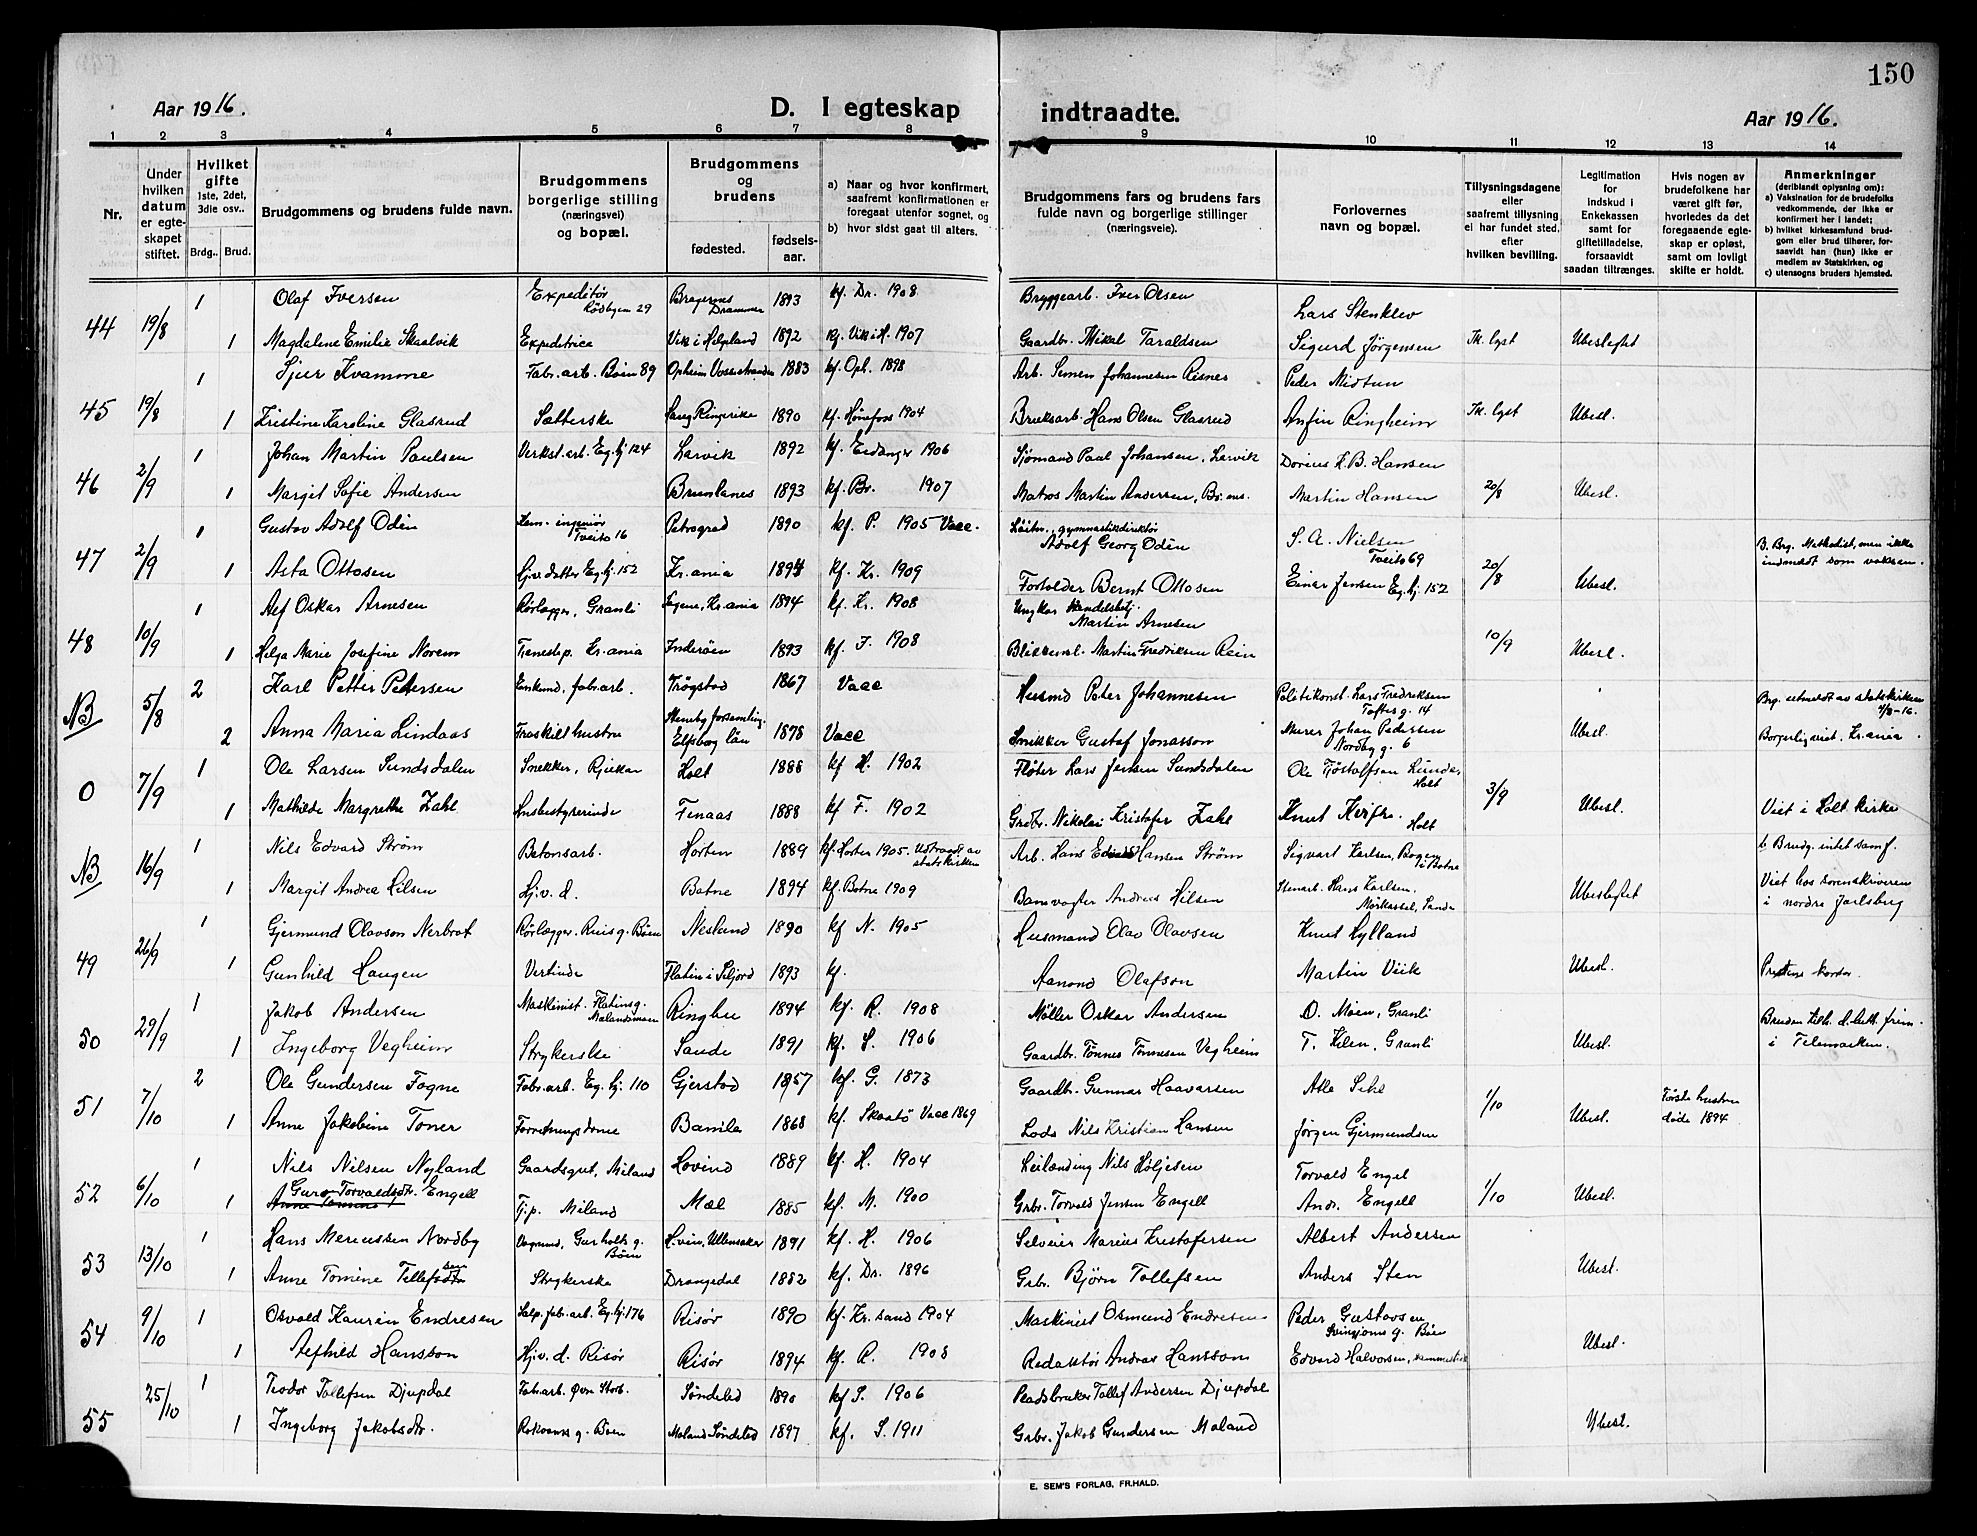 150
Aar 1916.
D. I egteskap indtraadte.
Aar 1916.
1 2 3 4 5 6 7 8 9 10 11 12 13 14
Nr.
Under hvilken datum er egte-skapet stiftet.
Hvilket gifte 1ste, 2det, 3die osv..
Brdg.. Brud.
Brudgommens og brudens fulde navn.
Brudgommens borgerlige stilling (næringsvei) og bopæl.
Brudgommens og brudens
fødested.
fødsels-aar.
a) Naar og hvor konfirmert, saafremt konfirmationen er foregaat utenfor sognet, og
b) hvor sidst gaat til alters.
Brudgommens fars og brudens fars fulde navn og borgerlige stillinger (næringsveie).
Forlovernes navn og bopæl.
Tillysningsdagene eller saafremt tillysning ei har fundet sted, efter hvilken bevilling.
Legitimation for indskud i Enkekassen samt for giftetilladelse, forsaavidt saadan tiltrænges.
Hvis nogen av brudefolkene har været gift før, hvorledes da det foregaaende egte-skap er opløst, samt om lovligt skifte er holdt.
Anmerkninger (deriblandt oplysning om):
a) Vaksination for de brudefolks vedkommende, der ikke er konfirmert her i landet;
b) hvilket kirkesamfund brud-gom eller brud tilhører, for-saavidt han (hun) ikke er medlem av Statskirken, og
c) utensogns bruders hjemsted.
44 19/8 1 Olaf Iversen Expeditør Rødbyen 29 Bragernes Drammen 1893 kf. Dr. 1908 Bryggearb. Iver Olsen Lars Stenklev
1 Magdalene Emilie Skaalvik Expeditrice Vik i Helgeland 1892 kf. Vik i H. 1907 Gaardbr. Mikal Taraldsen Sigurd Jørgensen Tk. lyst Ubesleftet
45 19/8 1 Sjur Kvamme Fabr. arb. Bøen 89 Opheim Vossestranden 1883 kf. Oph. 1898 Arb. Simen Johannesen Risnes Peder Midtun
1 Kristine Karoline Glasrud Sætterske Haug Ringerike 1890 kf. Hønefoss 1904 Bruksarb. Hans Olsen Glasrud Anfin Ringheim Tk. lyst Ubesl.
46 2/9 1 Johan Martin Paulsen Verkst. arb. Eg. hj 124 Larvik 1892 kf. Eidanger 1906 Sjømand Paul Johansen, Larvik Dorius K. B. Hansen
1 Margit Sofie Andersen Brunlanes 1893 kf. Br. 1907 Matros Martin Andersen, Br.nes. Martin Hansen 20/8 Ubesl.
47 2/9 1 Gustav Adolf Odén Kem. ingeniør Tveito 16 Petrograd 1890 kf. P. 1905 Vacc. Løitn., gymnastikdirektør Adolf Georg Odén S. A. Nielsen Tveito 69 B. Brg. Methodist, men ikke indmeldt som voksen.
1 Asta Ottosen Hjv. datter Eg. hj. 152 Kr.ania 1894 kf. Kr. 1909 Forholder Bernt Ottosen Einar Jensen Eg. hj. 152 20/8 Ubesl.
48 10/9 1 Alf Oskar Arnesen Rørlægger, Granli Fagene, Kr.ania 1894 kf. Kr. 1908 Ungkar Handelsbetj. Martin Arnesen
1 Helga Marie Josefine Norem Tjenestep. Kr.ania Inderøen 1893 kf. I. 1908 Blikkensl. Martin Fredriksen Rein 10/9 Ubesl.
NB 5/8 2 Karl Petter Pettersen Enkemd, fabr. arb. Trøgstad 1867 Vacc Husmd Peter Johannesen Politikonst. Lars Fredriksen Toftes g. 14 Brg. utmeldt av statskirken 4/8-16.
2 Anna Maria Lindaas Fraskilt hustru Steneby forsamling. Elfsborg län 1878 Vacc Snikker Gustaf Jonasson Murer Johan Pedersen Nordby g. 6 Ubesl. Borgerlig viet. Kr.ania.
0 7/9 1 Ole Larsen Sundsdalen Snekker, Rjukan Holt 1888 kf H. 1902 Fløter Lars Jensen Sundsdalen Ole Tjøstolfsen Lunde, Holt
1 Mathilde Margrethe Zahl Husbestyrerinde Finaas 1888 kf F. 1902 Grdbr. Nikolai Kristofer Zahl Knut Holt 3/9 Ubesl. Viet i Holt kirke
NB 16/9 1 Nils Edvard Strøm Betonsarb. Horten 1889 kf Horten 1905. Udtraadt av statskirken Arb. Hans Edvard Hansen Strøm Sigvart Karlsen, Bogen i Botne b Brudg. intet samf.
1 Margit Andrea Hilsen Hjv. d. Botne 1894 kf. Botne 1909 Banevogter Andreas Hilsen Stenarb. Hans Karlsen. Mørkassel, Sande Ubesleftet Viet hos sorenskriveren i nordre Jarlsberg
49 26/9 1 Gjermund Olavson Nerbrot Rørlægger. Ruis g. Bøen Nesland 1890 kf N. 1905 Husmand Olav Olavsen Knut Hylland
1 Gunhild Haugen Vertinde Flatin i Seljord 1893 kf. Aanond Olafson Martin Viik Ubesl. Prestens kontor.
50 29/9 1 Jakob Andersen Maskinist. Flatins g. Mælandsmoen Ringbu 1894 kf. R. 1908 Møller Oskar Andersen O. Moen, Granli Bruden tilh. d. luth. frim.
1 Ingeborg Vegheim Strykerske Sande 1891 kf. S. 1906 Gaardbr. Tønnes Tønnesen Vegheim T. Kilen, Granli Ubesl. i Telemarken.
51 7/10 2 Ole Gundersen Fogne Fabr. arb. Eg. hj. 110 Gjerstad 1857 kf. G. 1873 Gaardbr. Gunnar Haavarsen Atle Første hustru
1 Anne Jakobine Toner Forretningsdrive Bamle 1868 kf. Skaatø Vacc 1869 Lods Nils Kristian Hansen Jørgen Gjermundsen 1/10 Ubesl. døde 1894
52 6/10 1 Nils Nilsen Nyland Gaardsgut, Miland Hovind 1889 kf. H. 1904 Leilænding Nils Høljesen Torvald Engel
1 Guro Torvaldsdtr. Engell Tj.p. Miland Mæl 1885 kf. M. 1900 Grbr. Torvald Jensen Engell Andr. Engell 1/10 Ubesl.
53 13/10 1 Hans Meriussen Nordby Vognmd, Gurholts g. Bøen Hovin, Ullensaker 1891 kf. H. 1906 Selveier Marius Kristofersen Albert Andersen
1 Anne Tomine Tellefsen Strykerske Drangedal 1882 kf. Dr. 1896 Grbr. Bjørn Tollefsen Anders Sten Ubesl.
54 9/10 1 Osvald Kaurin Endresen Salp. fab. arb. Eg. hj. 176 Risør 1890 kf. Kr.sand 1904 Maskinist Osmund Endresen Peder Gustavsen g. Bøen
1 Alfhild Hansson Hjv. d. Risør Risør 1894 kf. R. 1908 Redaktør Andreas Hansson Edvard Halvorsen, Ubesl.
55 25/10 1 Teodor Tollefsen Djupdal Fabr. arb. Øvn Storb. Søndeled 1890 kf S. 1906 Pladsbruker Tollef Andersen Djupdal
1 Ingeborg Jakobsdtr. g. Bøen Moland Søndeled 1897 kf. S. 1911 Grbr. Jakob Gundersen Moland Ubesl.
E. SEM'S FORLAG, FR.HALD.